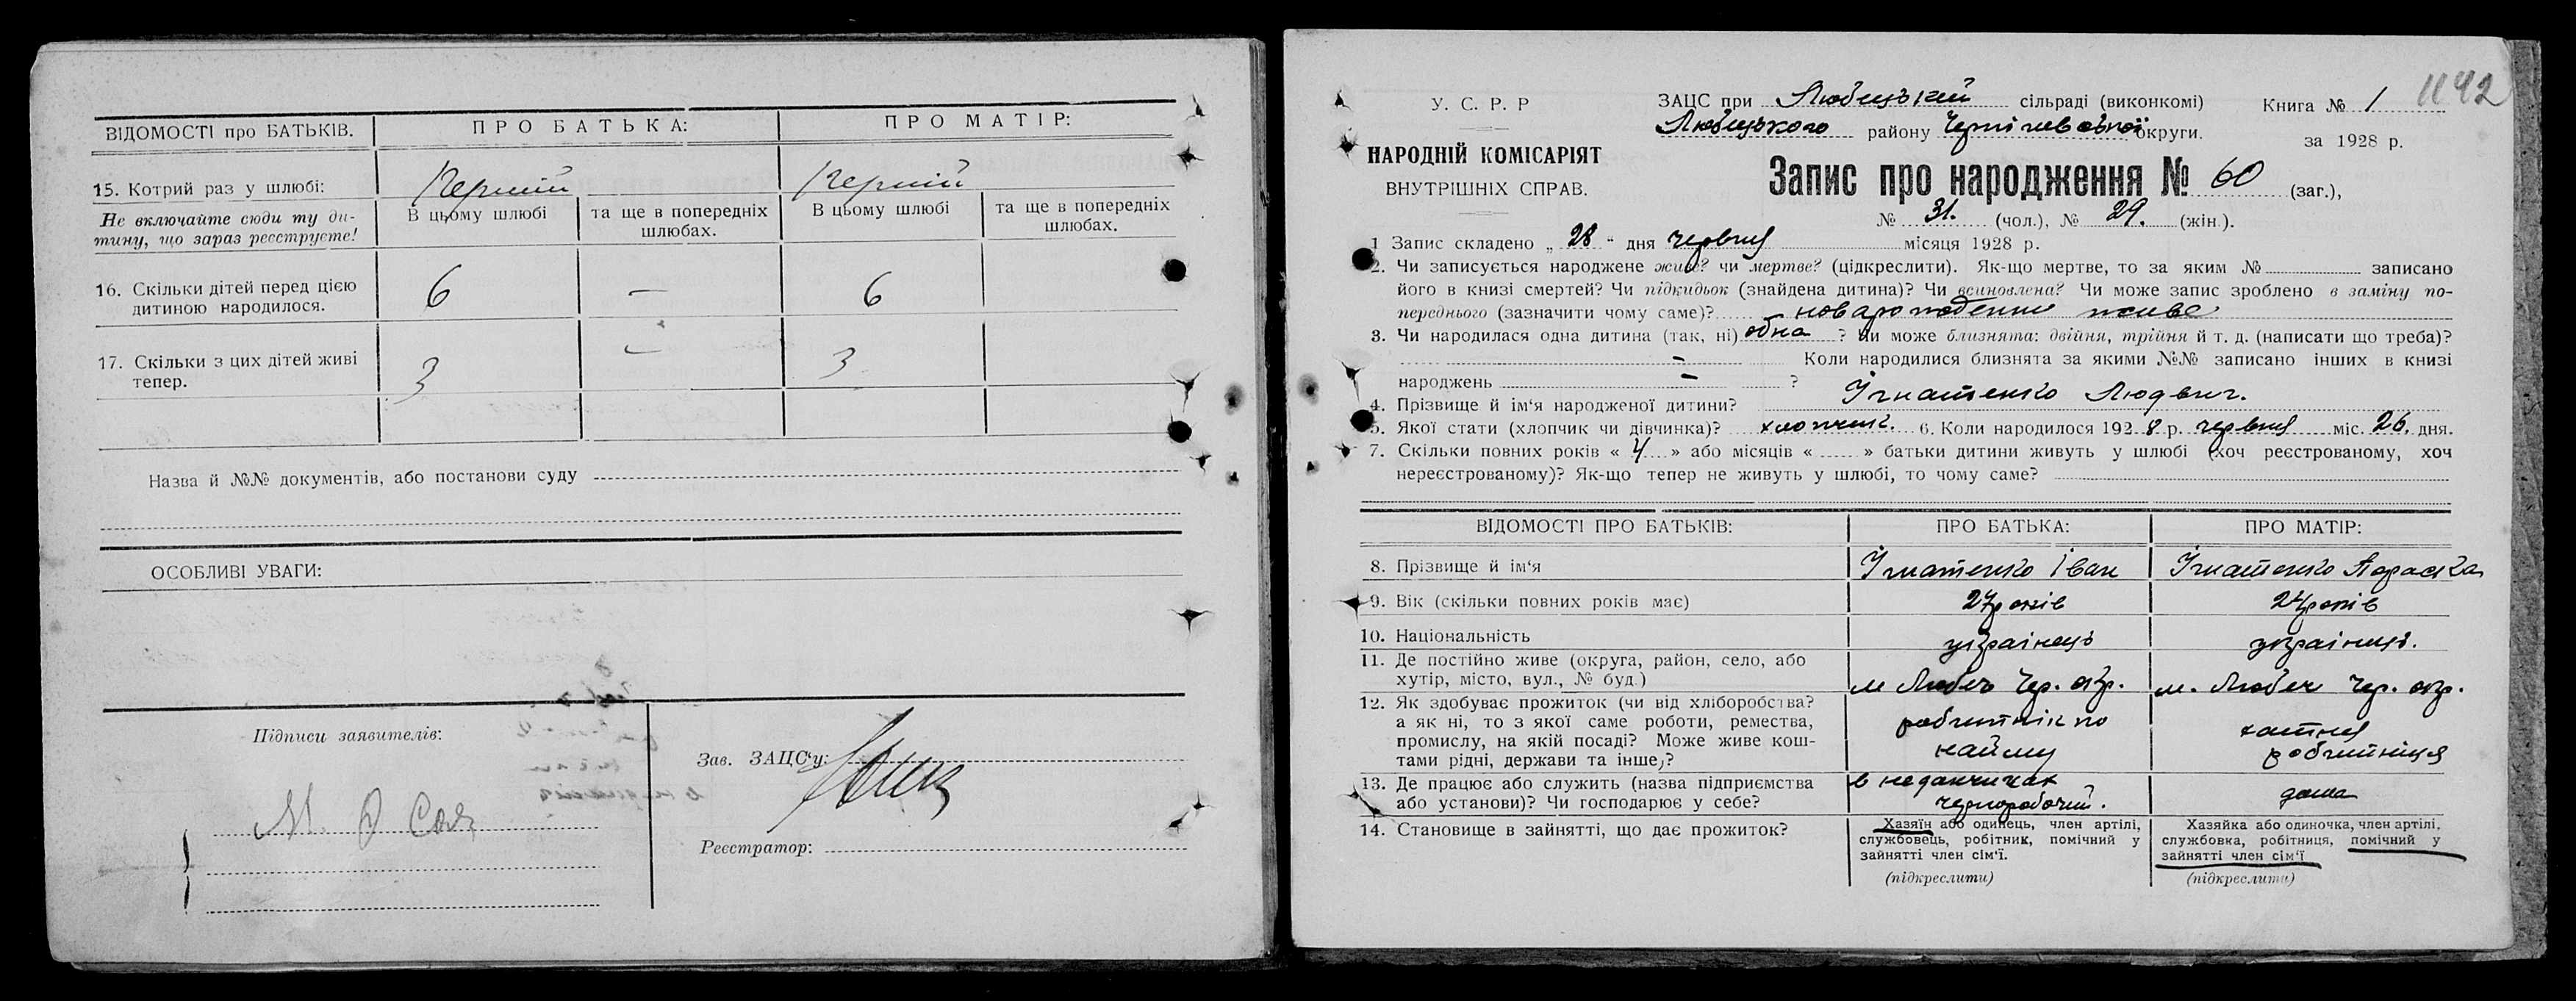 ВІДОМОСТІ про БАТЬКІВ. ПРО БАТЬКА: ПРО МАТІР:
15. Котрий раз у шлюбі: Перший Перший
Не включайте сюди ту ди-
тину, що зараз реєструєте!
В цьому шлюбі та ще в попередніх шлюбах. В цьому шлюбі та ще в попередніх шлюбах.
16. Скільки дітей перед цією
дитиною народилося. 6 — 6
17. Скільки з цих дітей живі
тепер. 3 — 3
Назва й №№ документів, або постанови суду
ОСОБЛИВІ УВАГИ:
Підписи заявителів:
Зав. ЗАЦС'у:
Реєстратор:
1142
У. С. Р. Р
НАРОДНІЙ КОМІСАРІЯТ
ВНУТРІШНІХ СПРАВ.
ЗАЦС при Любецький сільраді (виконкомі) Книга № 1
Любецького району Чернігівської округи. за 1928 р.
Запис про народження № 60 (заг.),
№ 31. (чол.), № 29. (жін.).
1 Запис складено „ 28 “ дня червня місяця 1928 р.
2. Чи записується народжене живе? чи мертве? (підкреслити). Як-що мертве, то за яким № записано
його в книзі смертей? Чи підкидьок (знайдена дитина)? Чи всиновлена? Чи може запис зроблено в заміну по-
переднього (зазначити чому саме)? новарождение живе
3. Чи народилася одна дитина (так, ні) обна ? Чи може близнята: двійня, трійня й т. д. (написати що треба)?
– Коли народилися близнята за якими №№ записано інших в книзі
народжень – ?
4. Прізвище й ім'я народженої дитини? Ігнатенко Людвиг.
5. Якої стати (хлопчик чи дівчинка)? хлопчик. 6. Коли народилося 1928 р. червня міс. 26. дня.
7. Скільки повних років « 4 » або місяців « » батьки дитини живуть у шлюбі (хоч реєстрованому, хоч
нереєстрованому)? Як-що тепер не живуть у шлюбі, то чому саме?
ВІДОМОСТІ ПРО БАТЬКІВ: ПРО БАТЬКА: ПРО МАТІР:
8. Прізвище й ім'я Ігнатенко Іван Ігнатенко Параска
9. Вік (скільки повних років має) 27 років 27 років
10. Національність українець українець.
11. Де постійно живе (округа, район, село, або
хутір, місто, вул., № буд.) м Любеч Чер. окр. м. Любеч Чер. окр.
12. Як здобуває прожиток (чи від хліборобства?
а як ні, то з якої саме роботи, ремества,
промислу, на якій посаді? Може живе кош-
тами рідні, держави та інше)?
робитнік по
найму
хатня
робитниця
13. Де працює або служить (назва підприємства
або установи)? Чи господарює у себе?
в неданчичах
чернорабочий.
дома
14. Становище в зайнятті, що дає прожиток?
Хазяїн або одинець, член артілі,
службовець, робітник, помічний у
зайнятті член сім'ї.
(підкреслити)
Хазяйка або одиночка, член артілі,
службовка, робітниця, помічний у
зайнятті член сім'ї
(підкреслити)